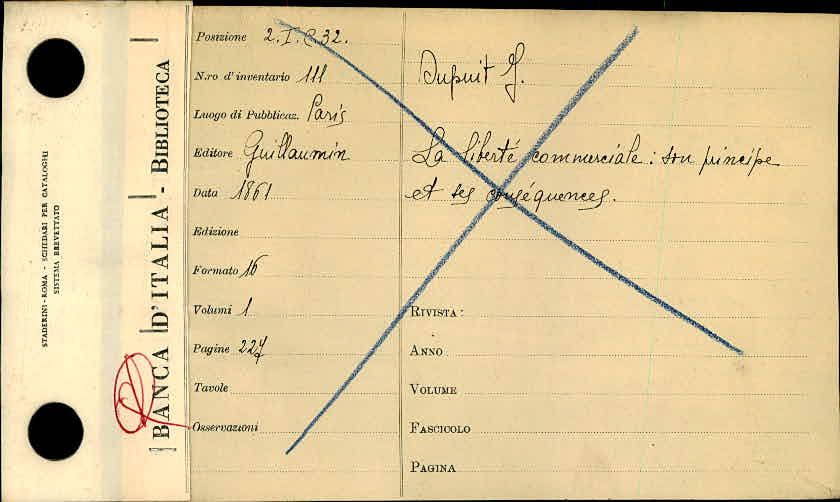 STADERINI - ROMA - SCHEDARI PER CATALOGHI
SISTEMA BREVETTATO
BANCA D'ITALIA - BIBLIOTECA
Posizione 2. I. C 32.
N.ro d'inventario 111
Luogo di Pubblicaz. Paris
Editore Guillaumin
Data 1861
Edizione
Formato 16
Volumi 1
Pagine 227
Tavole
Osservazioni
Dupuit J.
La liberté commerciale : son principe
et ses conséquences.
RIVISTA :
ANNO
VOLUME
FASCICOLO
PAGINA